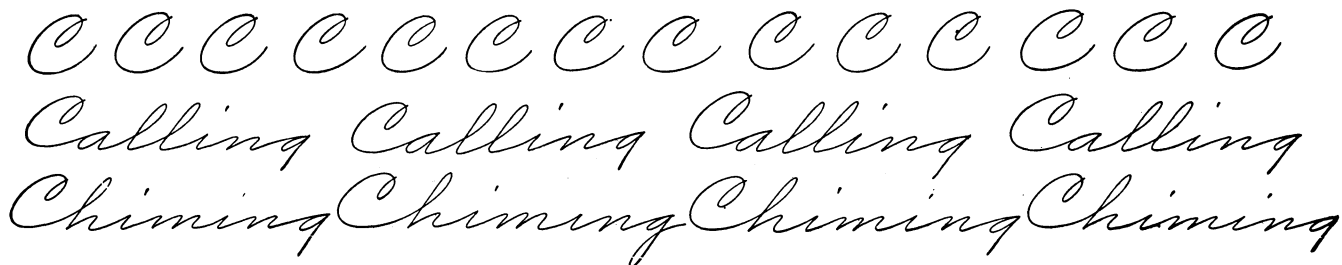 C C C C C C C C C C C C C C
Calling Calling Calling Calling
Chiming Chiming Chiming Chiming